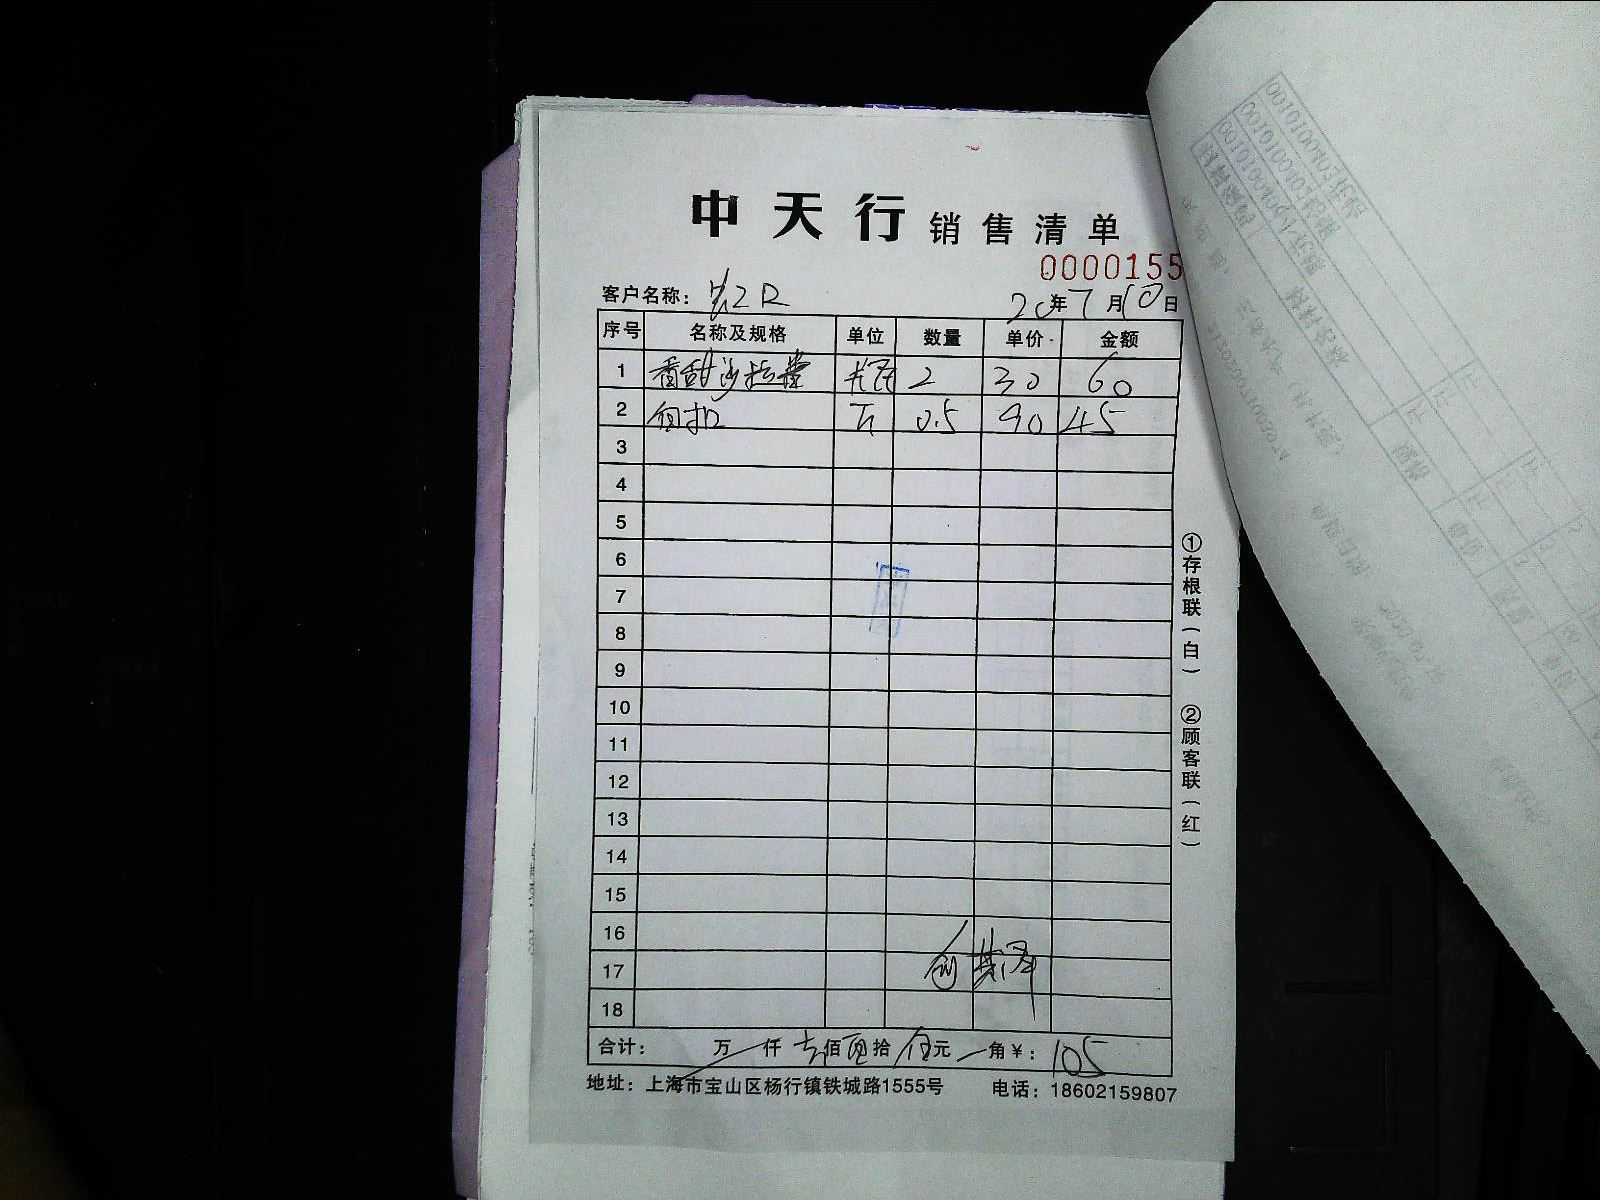 中天行 销售清单
0000155
客户名称：
20年7月10日
序号 名称及规格 单位 数量 单价 金额
1 香甜沙拉酱 2 30 60
2 白扣 斤 0.5 90 45
3
4
5
6
7
8
9
10
11
12
13
14
15
16
17
18
合计： 万 仟 壹佰零拾伍元 角￥：105
地址：上海市宝山区杨行镇铁城路1555号 电话：18602159807
①存根联（白）
②顾客联（红）